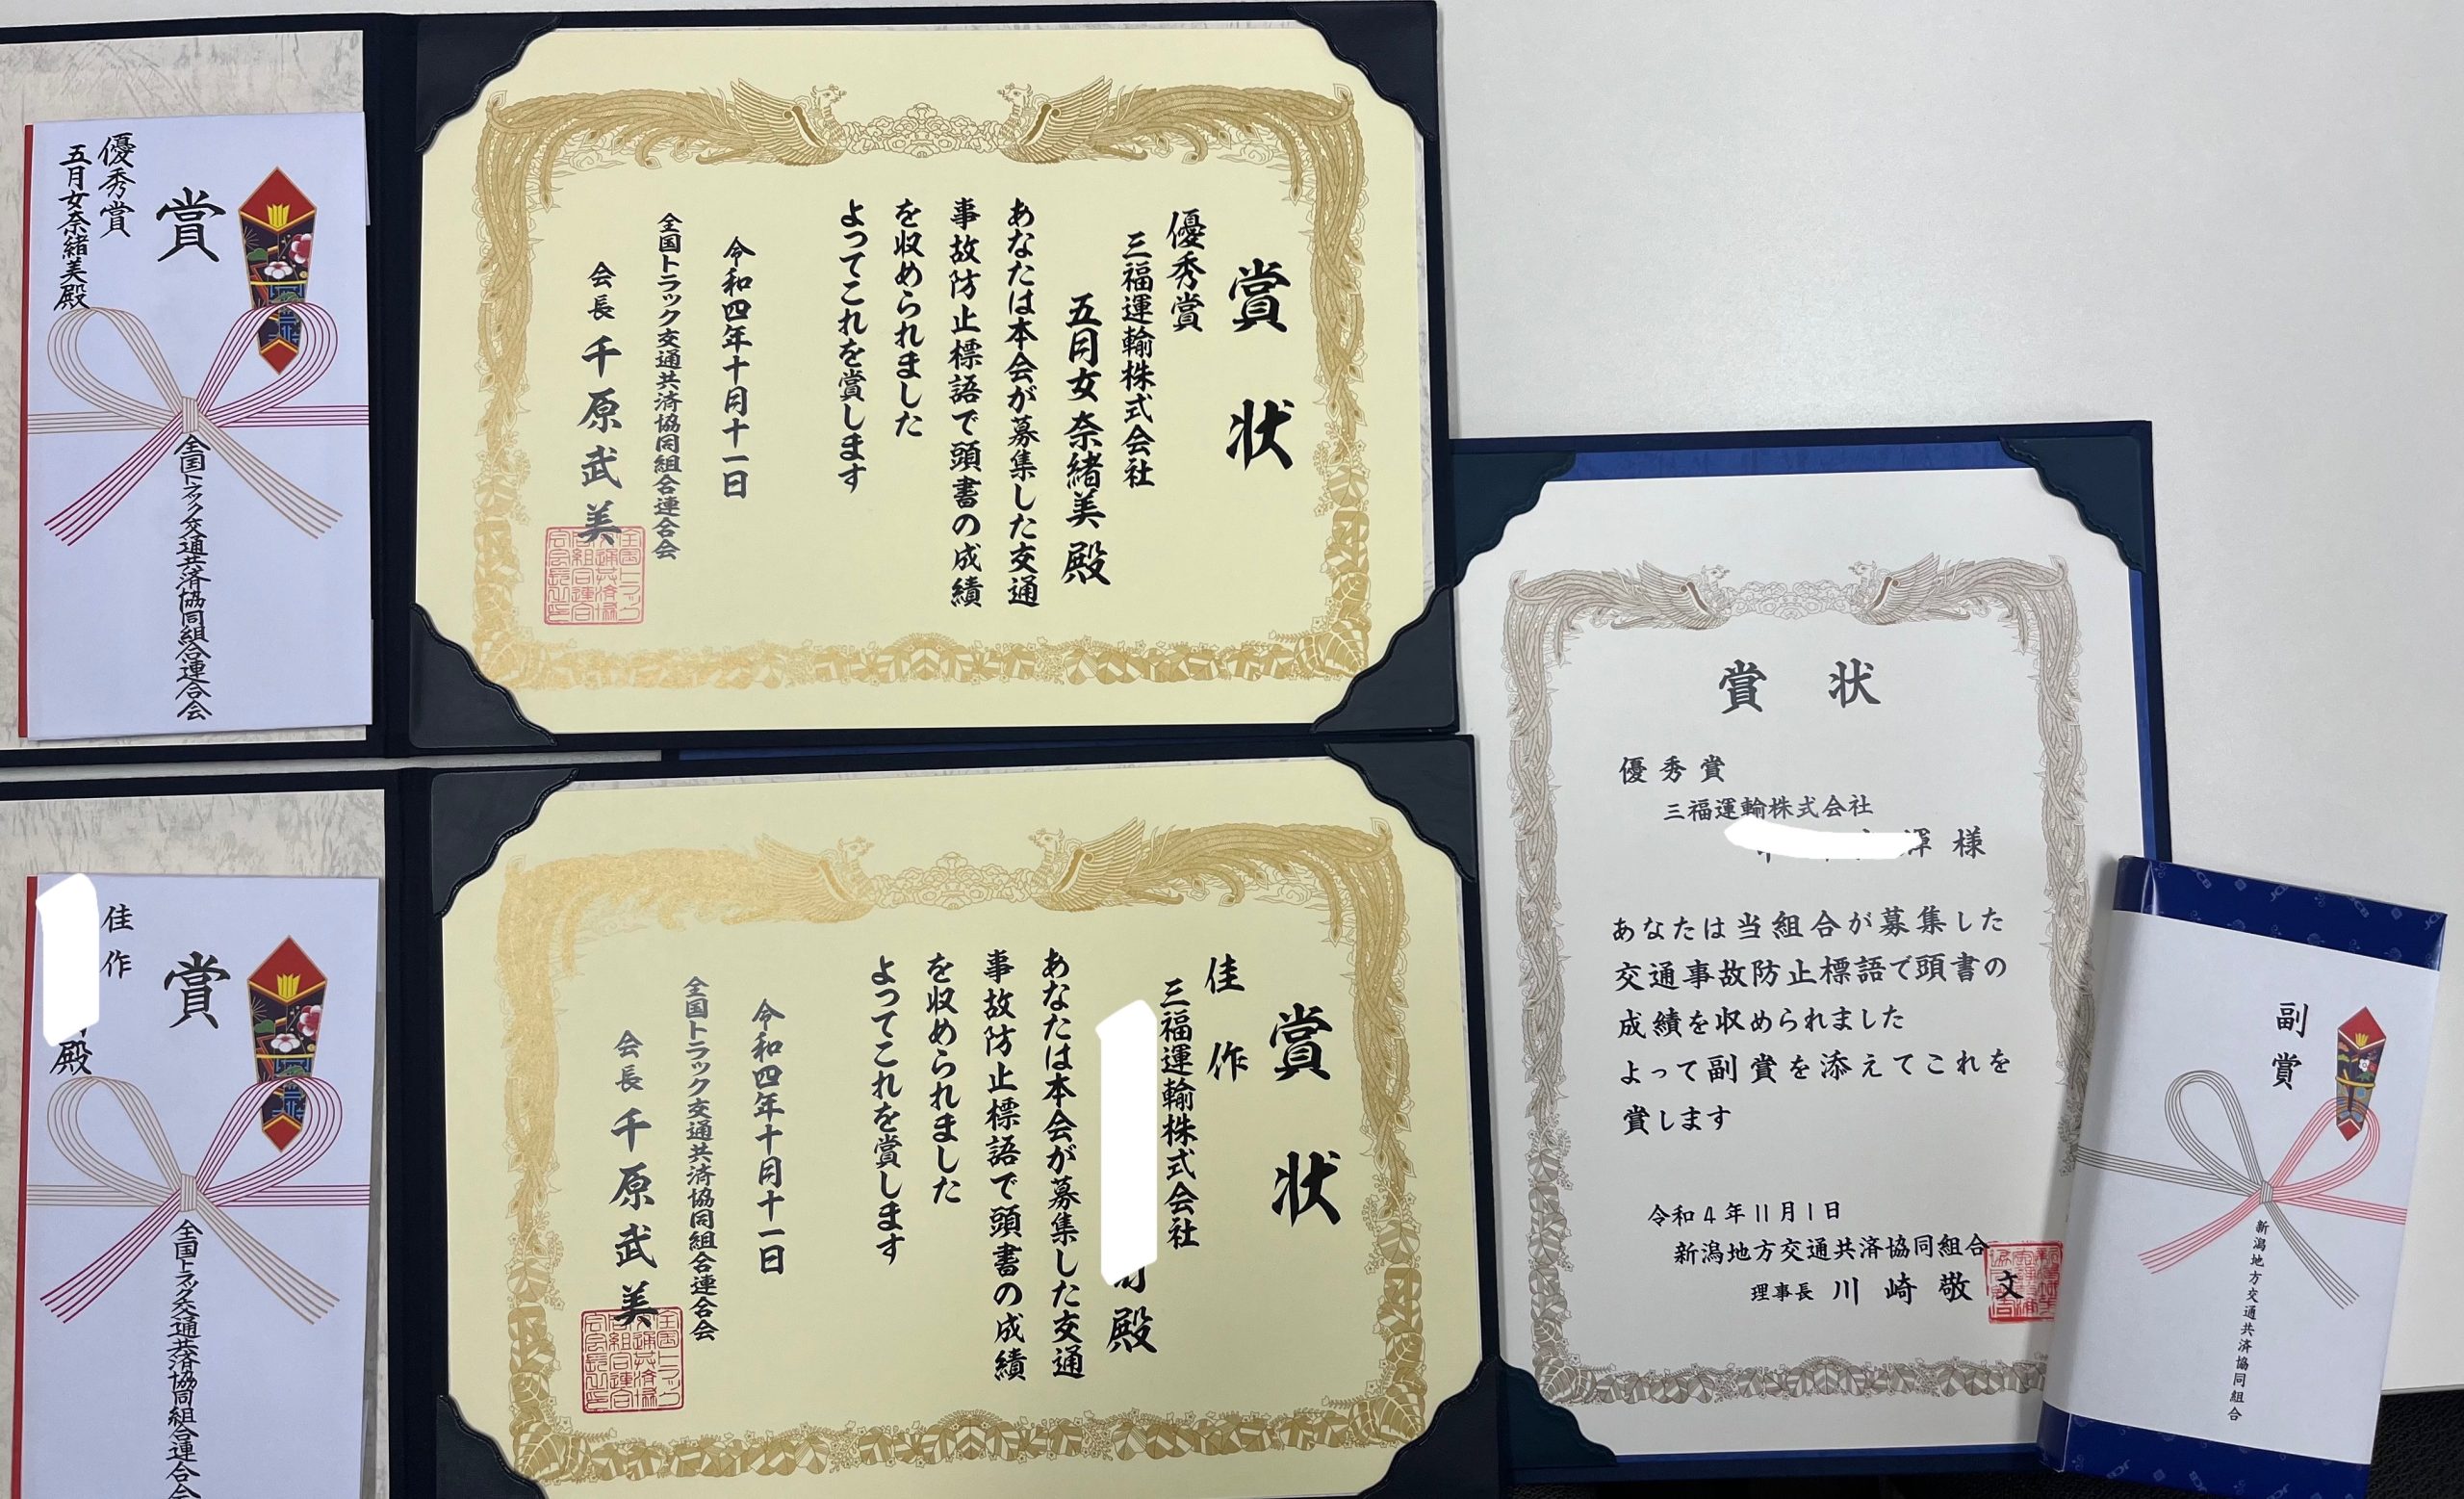 優秀賞
五月女奈緒美殿
賞
全国トラック交通共済協同組合連合会
賞状
優秀賞
三福運輸株式会社
五月女奈緒美殿
あなたは本会が募集した交通
事故防止標語で頭書の成績
を収められました
よってこれを賞します
令和四年十月十一日
全国トラック交通共済協同組合連合会
会長 千原武美
佳作
殿
賞
全国トラック交通共済協同組合連合会
賞状
佳作
三福運輸株式会社
殿
あなたは本会が募集した交通
事故防止標語で頭書の成績
を収められました
よってこれを賞します
令和四年十月十一日
全国トラック交通共済協同組合連合会
会長 千原武美
賞状
優秀賞
三福運輸株式会社
様
あなたは当組合が募集した
交通事故防止標語で頭書の
成績を収められました
よって副賞を添えてこれを
賞します
令和4年11月1日
新潟地方交通共済協同組合
理事長 川崎敬文
副賞
新潟地方交通共済協同組合
JCB